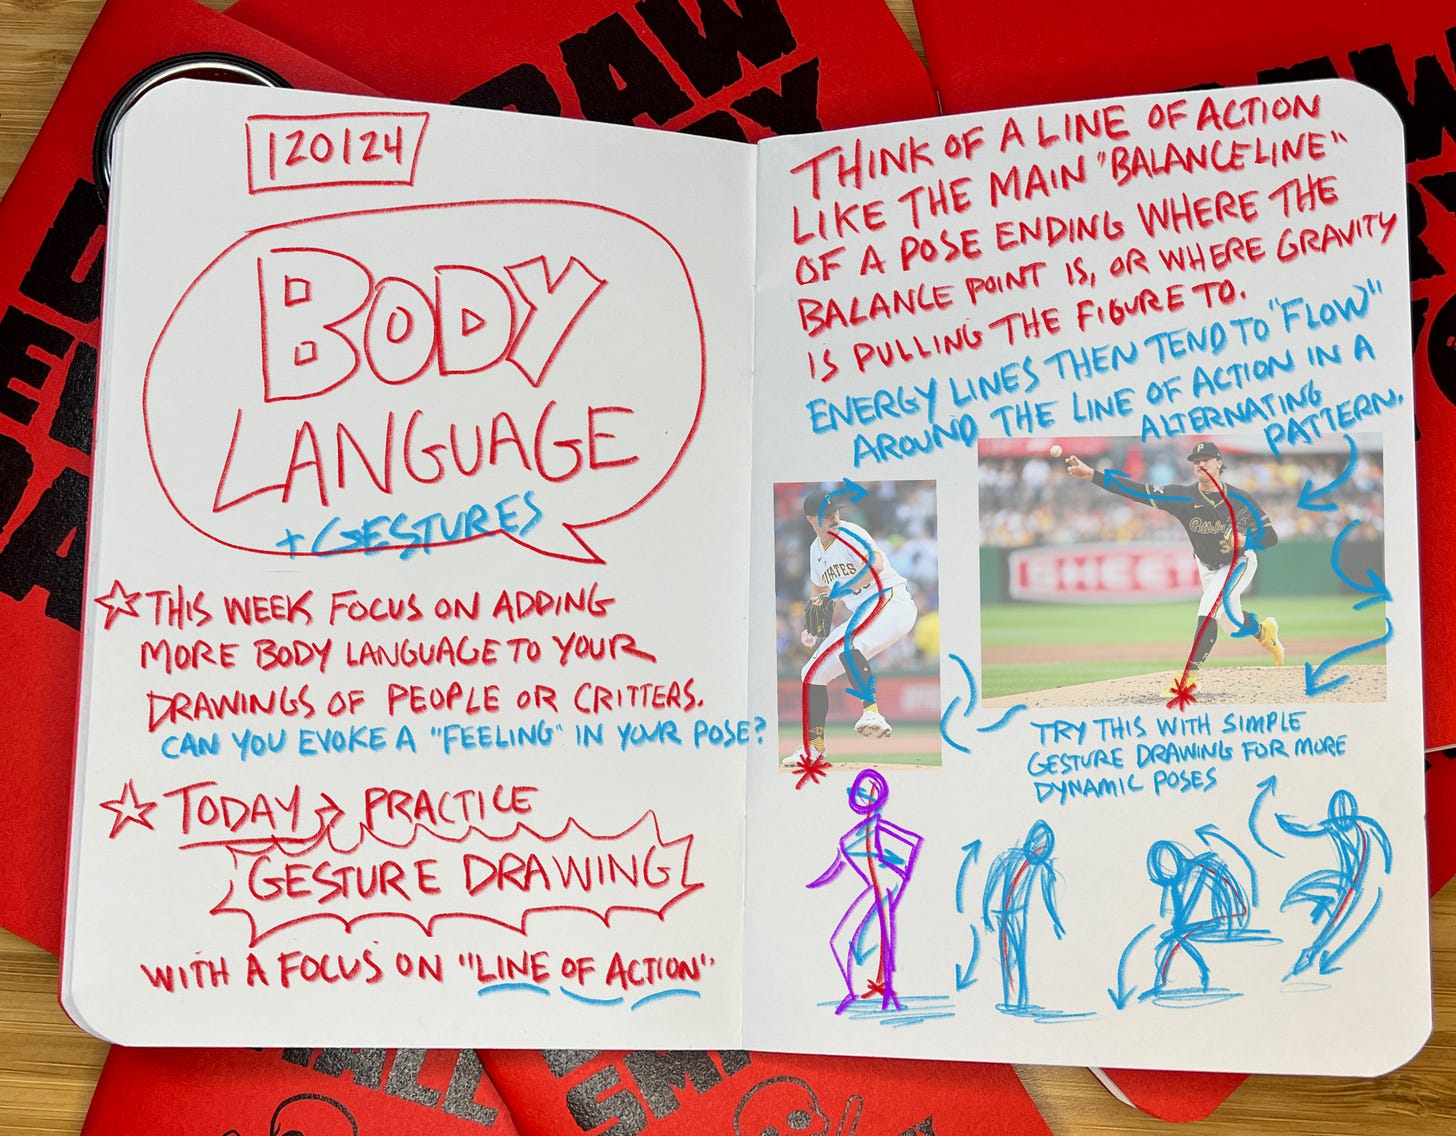 120124
BODY
LANGUAGE
+ GESTURES
THIS WEEK FOCUS ON ADDING
MORE BODY LANGUAGE TO YOUR
DRAWINGS OF PEOPLE OR CRITTERS.
CAN YOU EVOKE A "FEELING" IN YOUR POSE?
TODAY → PRACTICE
GESTURE DRAWING
WITH A FOCUS ON "LINE OF ACTION"
THINK OF A LINE OF ACTION
LIKE THE MAIN "BALANCE LINE"
OF A POSE ENDING WHERE THE
BALANCE POINT IS, OR WHERE GRAVITY
IS PULLING THE FIGURE TO.
ENERGY LINES THEN TEND TO "FLOW"
AROUND THE LINE OF ACTION IN A
ALTERNATING
PATTERN.
PIRATES
P
TRY THIS WITH SIMPLE
GESTURE DRAWING FOR MORE
DYNAMIC POSES
DRAW
SMALL